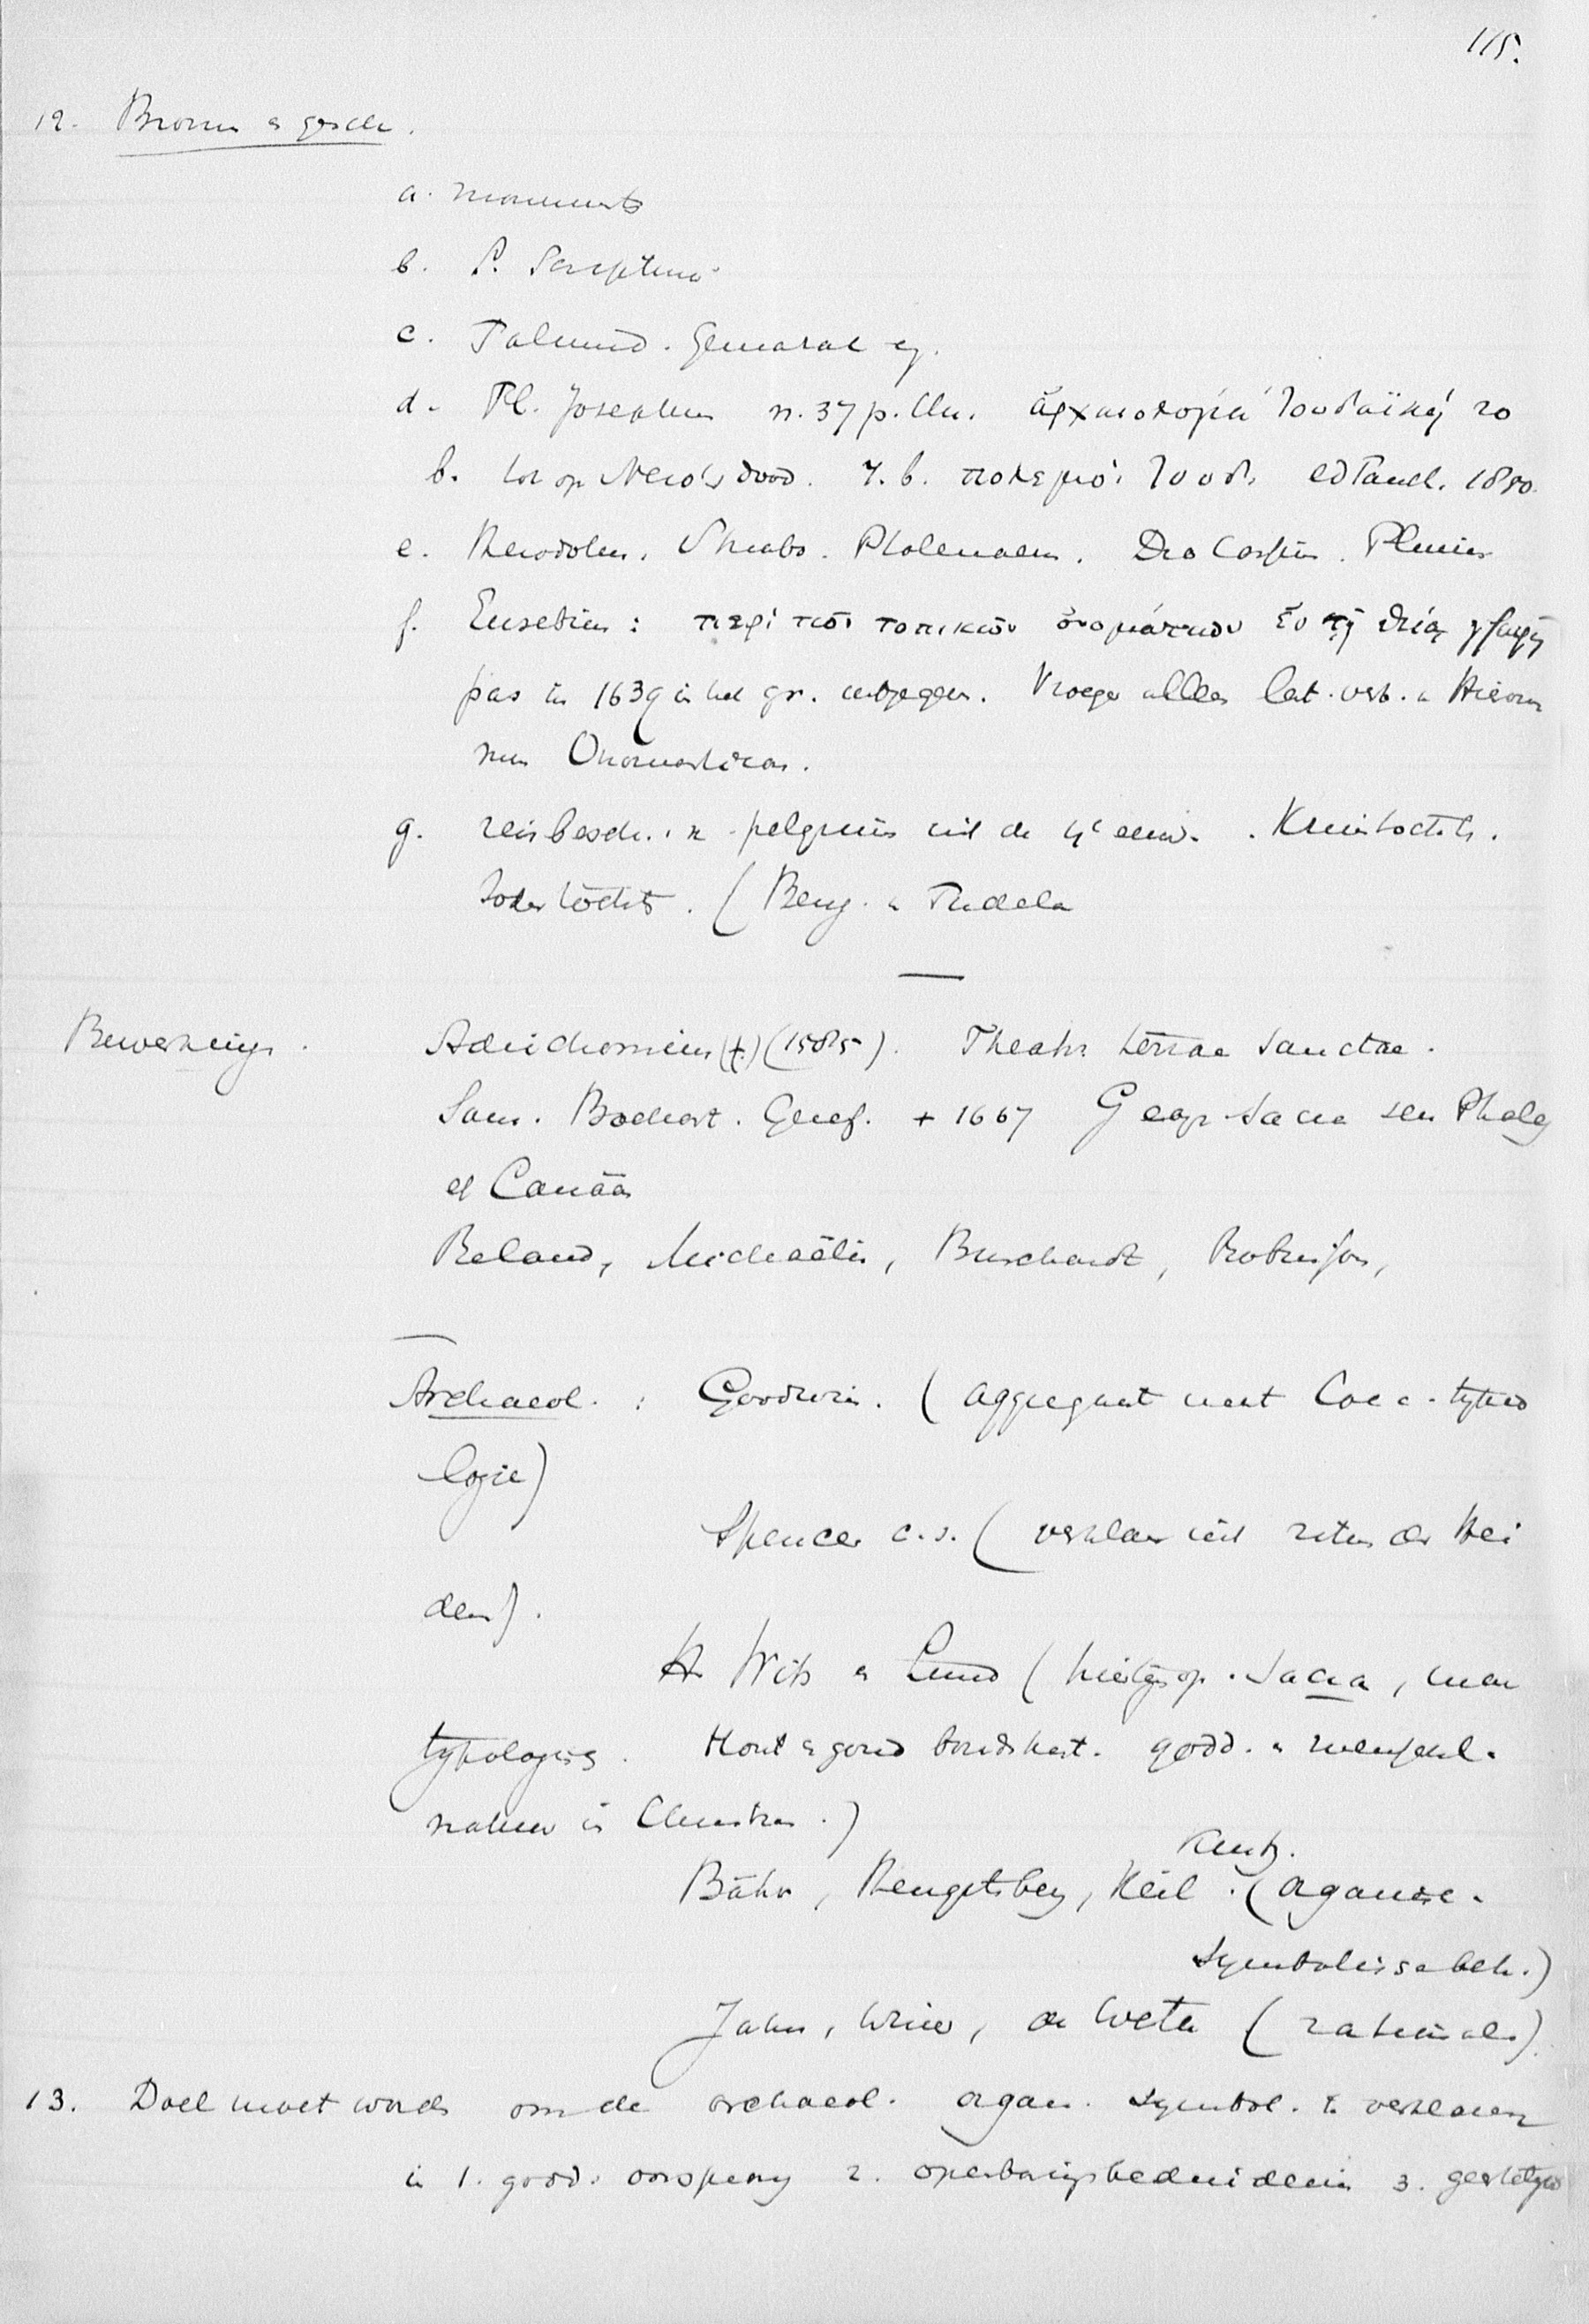 115.
12. Bronnen en gesch.
a. monuments
b. S. Scriptuur
c. Talmud. Gemarae ej.
d. Fl. Josephus n. 37 p. Chr. ἀρχαιολογία Ἰουδαϊκή 20
b. tot op Nero's dood. 7. b. πολεμιό. Ἰουδ. ed Tauch. 1850.
e. Herodotus. Strabo. Ptolemaeus. Dio Cassius. Plinius
f. Eusebius: περὶ τῶν τοπικῶν ὀνομάτων ἐν τῇ θείᾳ γραφῇ
pas in 1639 in het gr. uitgegeven. Vroeger alleen lat. vert. v Hieron
Onomasticon.
g. reisbeschr. v. pelgrims uit de 4e eeuw. Kruistochten.
(Benj. v Tudela
Bewerkingen.
Adrichomius (†) (1585). Theatr. terrae Sanctae.
Sam. Bochart. Geref. + 1667 Geogr. Sacra seu Phaleg
et Canaän
Reland, Michaëlis, Burchardt, Robinson,
Archaeol. : Goodwin. (aggregaat met Cocc. typo
logie)
Spencer c.s. (verklaar uit riten der Hei
denen).
H. Wits en Lund ( sacra, maar
typologisch. Hout en goud bondskist. godd. en menschel.
natuur in Christus.)
Kurtz.
Bähr, Hengstenberg, Keil. (organische.
symbolische beh.)
Jahn, Winer, de Wette (rationeel.)
13. Doel moet worden om de archaeol. organ. symbol. te verklaren
in 1. godd. oorsprong 2. openbaringsbeduidenis 3.